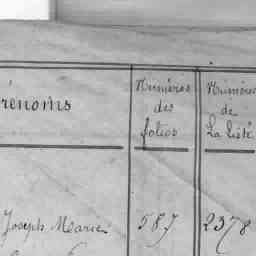 rénoms
Numéros
des
folios
Numéros
de
La liste
Joseph Marie
587
2378